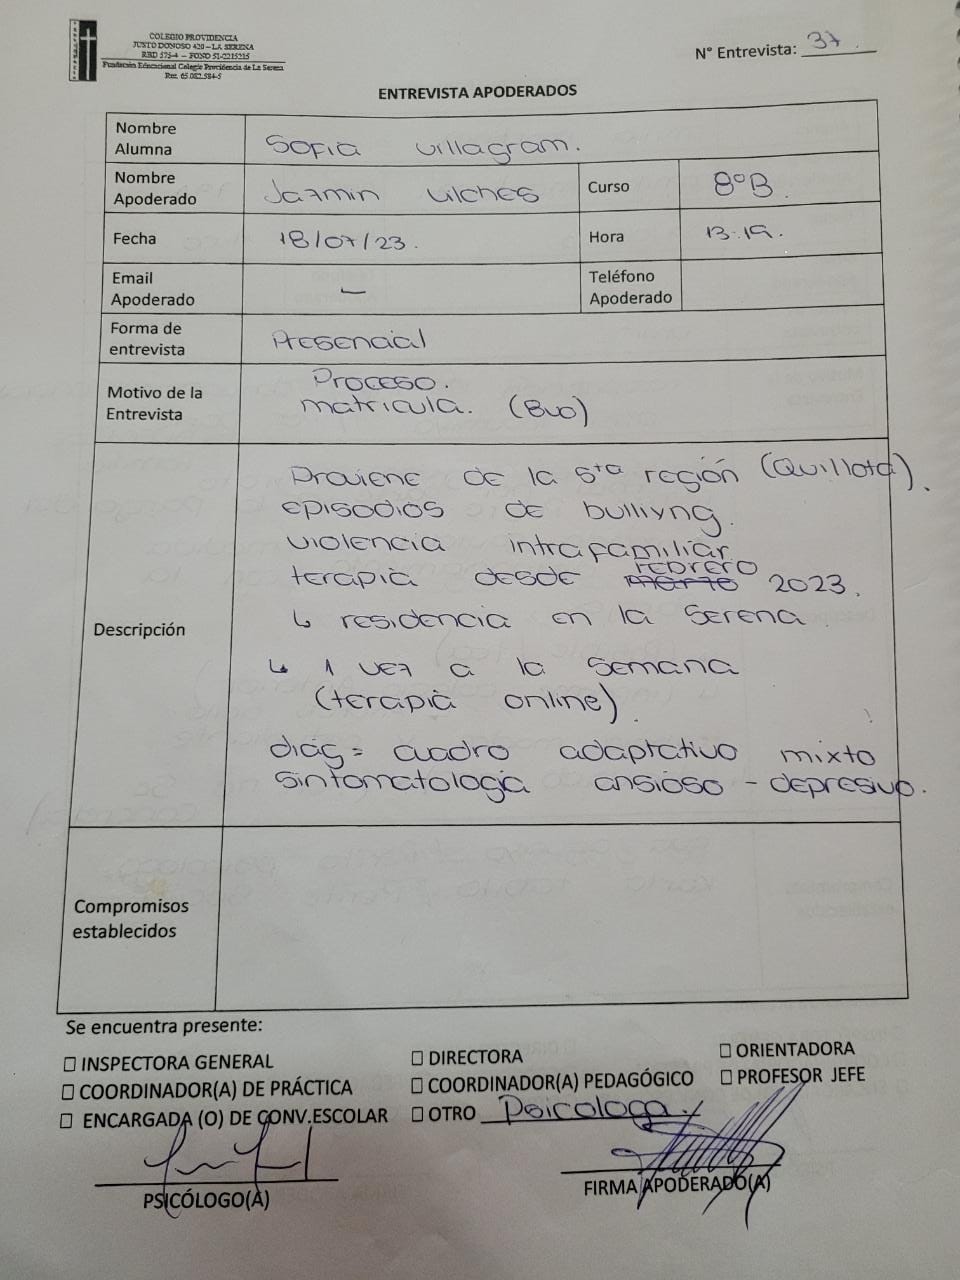 COLEGIO PROVIDENCIA
JUSTO DONOSO 420 – LA SERENA
RBD 575-4 – FONO 51-2215215
Fundación Educacional Colegio Providencia de La Serena
Rut. 65.082.584-5
N° Entrevista: 37.
ENTREVISTA APODERADOS
Nombre Alumna Sofia Villagram.
Nombre Apoderado Jazmin Vilches Curso 8°B.
Fecha 18/07/23. Hora 13:19.
Email Apoderado – Teléfono Apoderado
Forma de entrevista Presencial
Motivo de la Entrevista Proceso.
matricula. (8vo)
Descripción
Proviene de la 5ta región (Quillota).
episodios de bulliyng.
violencia intrafamiliar
terapia desde febrero 2023.
↳ residencia en la Serena.
↳ 1 vez a la semana
(terapia online).
diag = cuadro adaptativo mixto
sintomatologia ansioso - depresivo.
Compromisos establecidos
Se encuentra presente:
☐ INSPECTORA GENERAL ☐ DIRECTORA ☐ ORIENTADORA
☐ COORDINADOR(A) DE PRÁCTICA ☐ COORDINADOR(A) PEDAGÓGICO ☐ PROFESOR JEFE
☐ ENCARGADA (O) DE CONV.ESCOLAR ☐ OTRO Psicologa
PSICÓLOGO(A) FIRMA APODERADO(A)